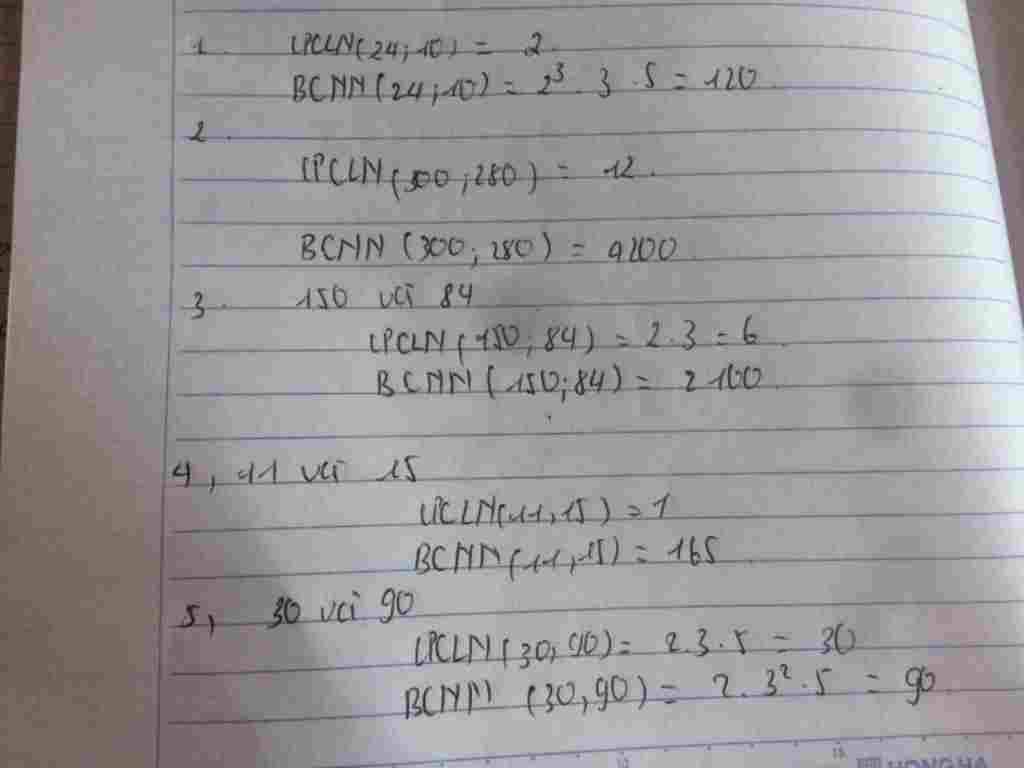 1. ƯCLN(24;10) = 2.
BCNN(24;10) = 2³. 3 . 5 = 120
2.
ƯCLN(300;280) = 12.
BCNN (300; 280) = 4200
3. 150 và 84
ƯCLN(150; 84) = 2.3 = 6
BCNN (150;84) = 2100
4, 11 và 15
ƯCLN(11,15) = 1
BCNN(11,15) = 165
5, 30 và 90
ƯCLN(30,90) = 2.3.5 = 30
BCNN (30,90) = 2.3².5 = 90
HONG HA